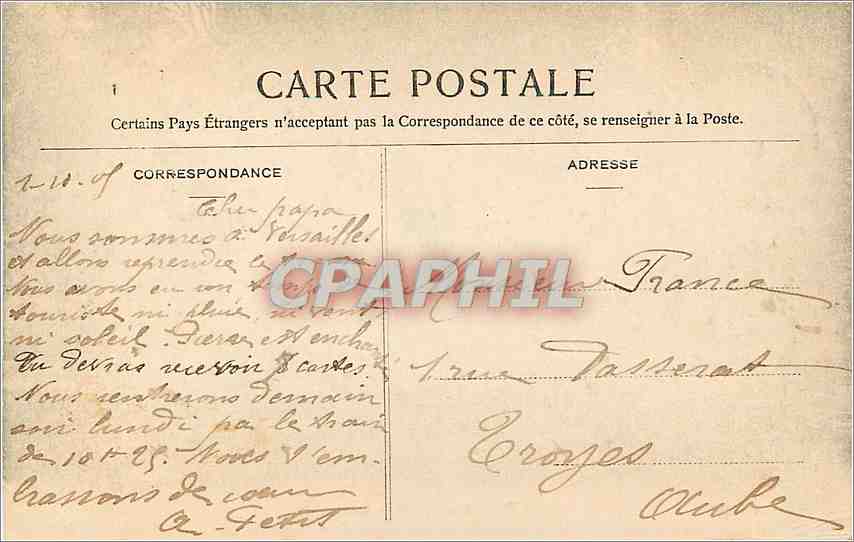 CARTE POSTALE
Certains Pays Étrangers n'acceptant pas la Correspondance de ce côté, se renseigner à la Poste.
CORRESPONDANCE
2-10-05
Cher papa
Nous sommes à Versailles
et allons reprendre le
Nous avons eu un temps de
touriste ni pluie, ni vent
ni soleil. Pierre est enchanté
Tu devras recevoir 8 cartes.
Nous rentrerons demain
soir lundi par le train
de 10h 25. Nous t'em-
brassons de coeur
A. Petit
ADRESSE
Monsieur France
1 rue Passerat
Troyes
Aube
CPAPHIL